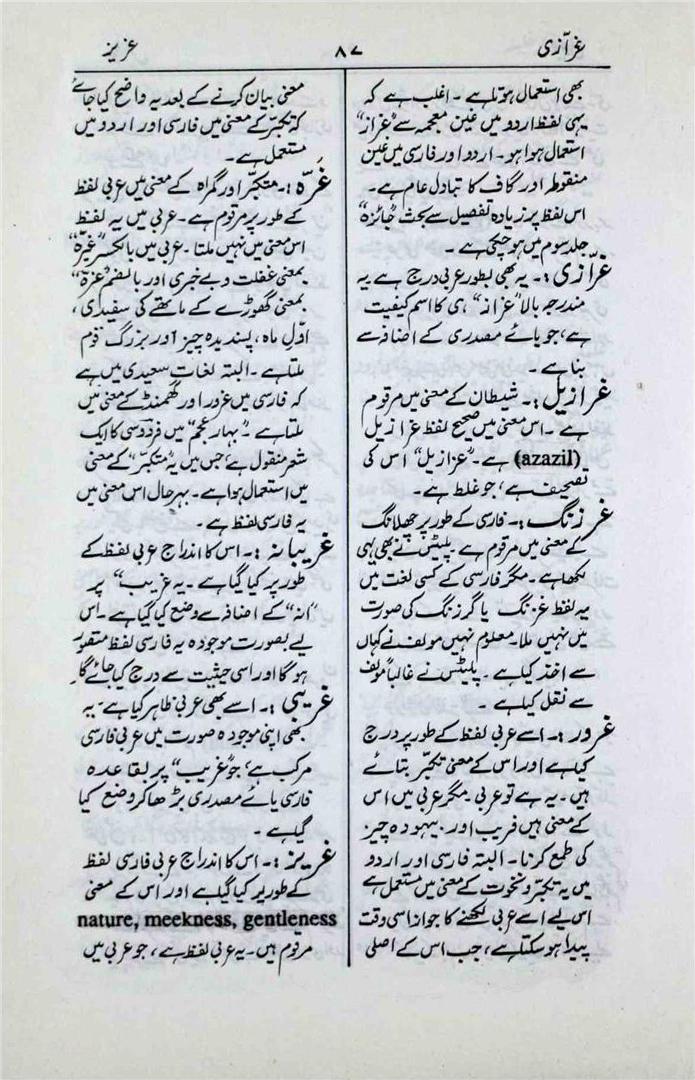 غرّازی
۸۷
غریز
بھی استعمال ہوتا ہے ۔ اغلب ہے کہ
یہی لفظ اردو میں عین معجمہ سے ”غراز“
استعمال ہوا ہو ۔ اردو اور فارسی میں غین
منقوطہ اور گاف کا تبادل عام ہے ۔
اس لفظ پر زیادہ تفصیل سے بحث ”جائزہ“
جلد سوم میں ہو چکی ہے ۔
غرّازی :۔ یہ بھی بطور عربی درج ہے یہ
مندرجہ بالا ”غراز“ ہی کا اسم کیفیت
ہے، جو یائے مصدری کے اضافہ سے
بنا ہے ۔
غرازیل :۔ شیطان کے معنی میں مرقوم
ہے ۔ اس معنی میں صحیح لفظ عزازیل
(azazil) ہے ۔ ”غرازیل“ اس کی
تصحیف ہے، جو غلط ہے ۔
غرزنگ :۔ فارسی کے طور پر چھلانگ
کے معنی میں مرقوم ہے ۔ پلیٹس نے بھی یہی
لکھا ہے ۔ مگر فارسی کے کسی لغت میں
یہ لفظ غرزنگ یا گرزنگ کی صورت
میں نہیں ملا ۔ معلوم نہیں مولف نے کہاں
سے اخذ کیا ہے ۔ پلیٹس نے غالباً مولف
سے نقل کیا ہے ۔
غرور :۔ اسے عربی لفظ کے طور پر درج
کیا ہے اور اس کے معنی تکبّر بتائے
ہیں ۔ یہ ہے تو عربی ۔ مگر عربی میں اس
کے معنی ہیں فریب اور ۔ بیہودہ چیز
کی طمع کرنا ۔ البتہ فارسی اور اردو
میں یہ تکبّر و نخوت کے معنی میں مستعمل ہے
اس لیے اسے عربی لکھنے کا جواز اسی وقت
پیدا ہو سکتا ہے، جب اس کے اصلی
معنی بیان کرنے کے بعد یہ واضح کیا جائے
کہ تکبّر کے معنی میں فارسی اور اردو میں
مستعمل ہے ۔
غرّہ :۔ متکبّر اور گمراہ کے معنی میں عربی لفظ
کے طور پر مرقوم ہے ۔ عربی میں یہ لفظ
اس معنی میں نہیں ملتا ۔ عربی میں بالکسر ”غِرّہ“
بمعنی غفلت و بے خبری اور بالضم ”غرّۃ“
بمعنی گھوڑے کے ماتھے کی سفیدی،
اوّل ماہ، پسندیدہ چیز اور بزرگ قوم
ملتا ہے ۔ البتہ لغات سعیدی میں ہے
کہ فارسی میں غرور اور گھمنڈ کے معنی میں
ملتا ہے ۔ ”بہار عجم“ میں فردوسی کا ایک
شعر منقول ہے، جس میں یہ ”متکبّر“ کے معنی
میں استعمال ہوا ہے ۔ بہر حال اس معنی میں
یہ فارسی لفظ ہے ۔
غریبانہ :۔ اس کا اندراج عربی لفظ کے
طور پر کیا گیا ہے ۔ یہ ”غریب“ پر
”انہ“ کے اضافہ سے وضع کیا گیا ہے ۔ اس
لیے بصورت موجودہ یہ فارسی لفظ متصور
ہوگا اور اسی حیثیت سے درج کیا جائے گا ۔
غریبی :۔ اسے بھی عربی ظاہر کیا ہے ۔ یہ
بھی اپنی موجودہ صورت میں عربی فارسی
مرکب ہے، جو ”غریب“ پر بقاعدہ
فارسی یائے مصدری بڑھا کر وضع کیا
گیا ہے ۔
غریز :۔ اس کا اندراج عربی فارسی لفظ
کے طور پر کیا گیا ہے اور اس کے معنی
nature, meekness, gentleness
مرقوم ہیں ۔ یہ عربی لفظ ہے، جو عربی میں